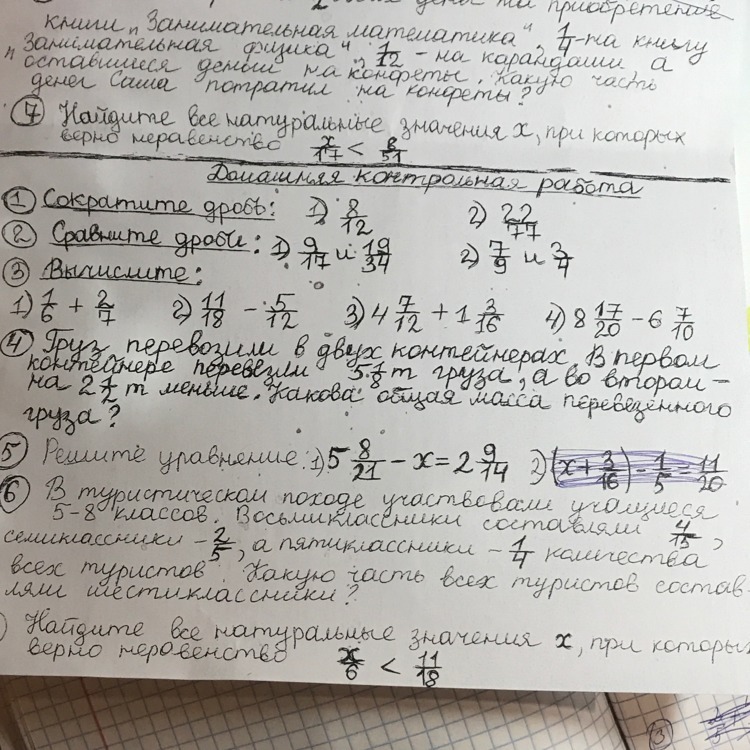 на приобретение
книги „Занимательная математика“, 1/4 - на книгу
„Занимательная физика“, 1/12 - на карандаши а
оставшиеся деньги на конфеты. Какую часть
денег Саша потратил на конфеты?
7 Найдите все натуральные значения x, при которых
верно неравенство x/17 < 8/51
Домашняя контрольная работа
1 Сократите дробь: 1) 8/12 2) 22/77
2 Сравните дроби: 1) 9/17 и 19/34 2) 7/9 и 3/4
3 Вычислите:
1) 1/6 + 2/7 2) 11/18 - 5/12 3) 4 7/12 + 1 3/16 4) 8 17/20 - 6 7/10
4 Груз перевозили в двух контейнерах. В первом
контейнере перевезли 5 1/8 т груза, а во втором -
на 2 1/2 т меньше. Какова общая масса перевезённого
груза?
5 Решите уравнение: 1) 5 8/21 - x = 2 9/14 2) (x + 3/16) - 1/5 = 11/20
6 В туристическом походе участвовали учащиеся
5-8 классов. Восьмиклассники составляли 4/15,
семиклассники - 2/5, а пятиклассники - 1/4 количества
всех туристов. Какую часть всех туристов состав-
ляли шестиклассники?
Найдите все натуральные значения x, при которых
верно неровенство x/6 < 11/18
3